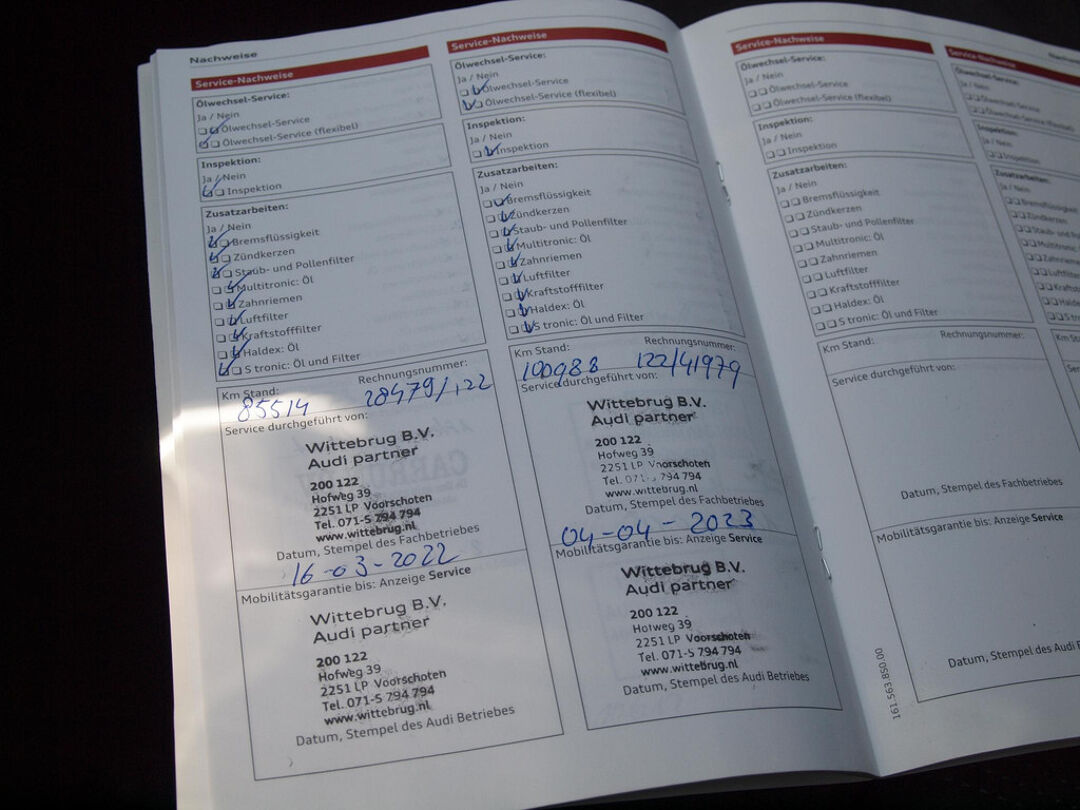 Nachweise
Service-Nachweise
Ölwechsel-Service:
Ja / Nein
Ölwechsel-Service
Ölwechsel-Service (flexibel)
Inspektion:
Ja / Nein
Inspektion
Zusatzarbeiten:
Ja / Nein
Bremsflüssigkeit
Zündkerzen
Staub- und Pollenfilter
Multitronic: Öl
Zahnriemen
Luftfilter
Kraftstofffilter
Haldex: Öl
S tronic: Öl und Filter
Km Stand:
Rechnungsnummer:
85514
28479/122
Service durchgeführt von:
Wittebrug B.V.
Audi partner
200 122
Hofweg 39
2251 LP Voorschoten
Tel. 071-5 794 794
www.wittebrug.nl
Datum, Stempel des Fachbetriebes
16-03-2022
Mobilitätsgarantie bis: Anzeige Service
Wittebrug B.V.
Audi partner
200 122
Hofweg 39
2251 LP Voorschoten
Tel. 071-5 794 794
www.wittebrug.nl
Datum, Stempel des Audi Betriebes
Service-Nachweise
Ölwechsel-Service:
Ja / Nein
Ölwechsel-Service
Ölwechsel-Service (flexibel)
Inspektion:
Ja / Nein
Inspektion
Zusatzarbeiten:
Ja / Nein
Bremsflüssigkeit
Zündkerzen
Staub- und Pollenfilter
Multitronic: Öl
Zahnriemen
Luftfilter
Kraftstofffilter
Haldex: Öl
S tronic: Öl und Filter
Km Stand:
Rechnungsnummer:
100988
122/41979
Service durchgeführt von:
Wittebrug B.V.
Audi partner
200 122
Hofweg 39
2251 LP Voorschoten
Tel. 071-5 794 794
www.wittebrug.nl
Datum, Stempel des Fachbetriebes
04-04-2023
Mobilitätsgarantie bis: Anzeige Service
Wittebrug B.V.
Audi partner
200 122
Hofweg 39
2251 LP Voorschoten
Tel. 071-5 794 794
www.wittebrug.nl
Datum, Stempel des Audi Betriebes
Service-Nachweise
Ölwechsel-Service:
Ja / Nein
Ölwechsel-Service
Ölwechsel-Service (flexibel)
Inspektion:
Ja / Nein
Inspektion
Zusatzarbeiten:
Ja / Nein
Bremsflüssigkeit
Zündkerzen
Staub- und Pollenfilter
Multitronic: Öl
Zahnriemen
Luftfilter
Kraftstofffilter
Haldex: Öl
S tronic: Öl und Filter
Km Stand:
Rechnungsnummer:
Service durchgeführt von:
Datum, Stempel des Fachbetriebes
Mobilitätsgarantie bis: Anzeige Service
Datum, Stempel des Audi
161.563.850.00
Service-Nachweise
Ölwechsel-Service:
Ja / Nein
Ölwechsel-Service
Inspektion:
Ja / Nein
Inspektion
Zusatzarbeiten:
Ja / Nein
Bremsflüssigkeit
Zündkerzen
Staub- und
Multitronic:
Zahnriemen
Luftfilter
Haldex:
S tronic: